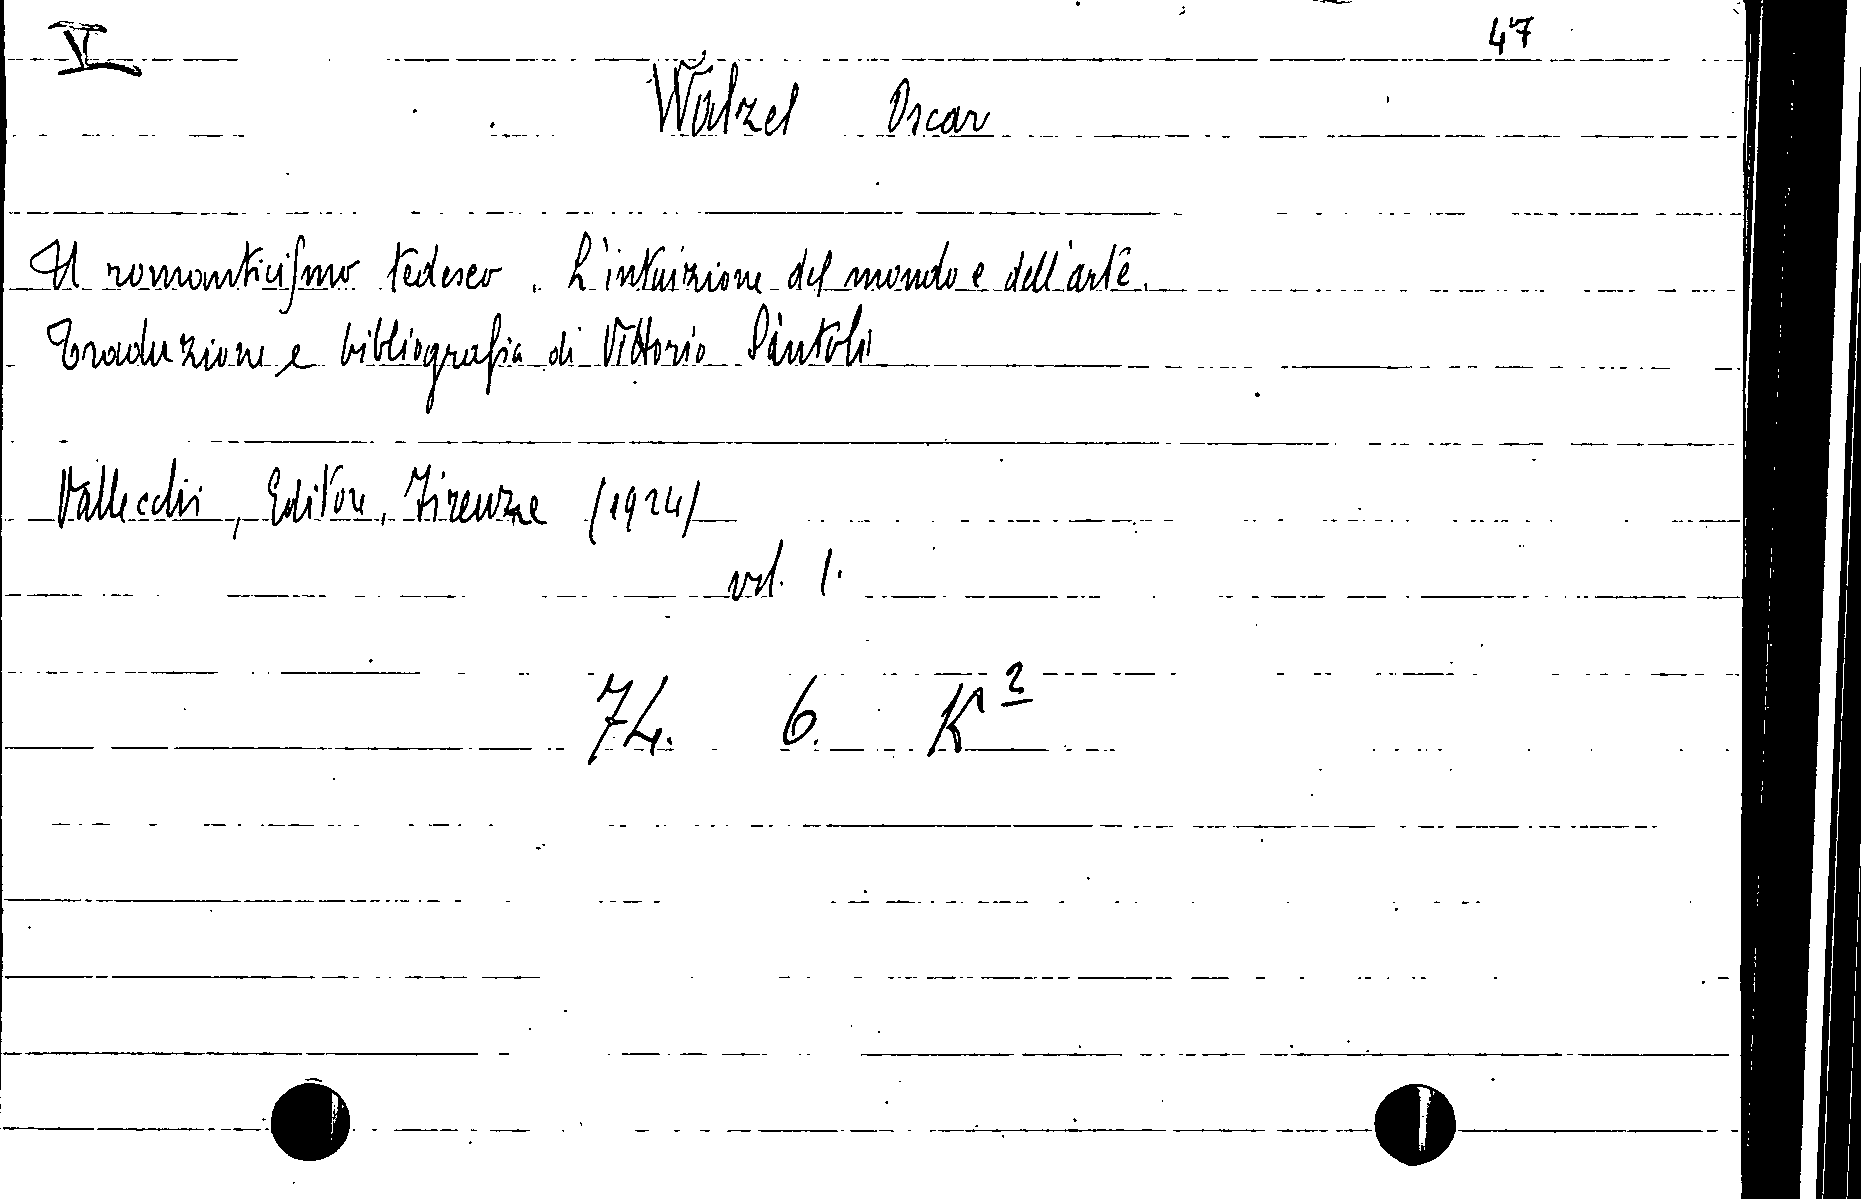 V 47
Walzel Oscar
Il romanticismo tedesco. L'intuizione del mondo e dell'arte.
Traduzione e bibliografia di Vittorio Santoli
Vallecchi, Editore, Firenze (1924)
vol. 1.
74. 6. K²